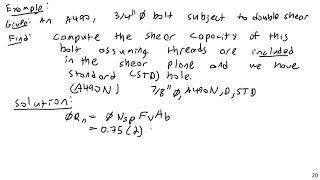 Example:
Given: An A490, 3/4"Φ bolt subject to double shear
Find: Compute the shear capacity of this
bolt assuming threads are included
in the shear plane and we have
standard (STD) hole.
(A490N) 7/8"Φ, A490N, D, STD
Solution:
ΦRn = Φ Nsp Fv Ab
= 0.75 (2)
20